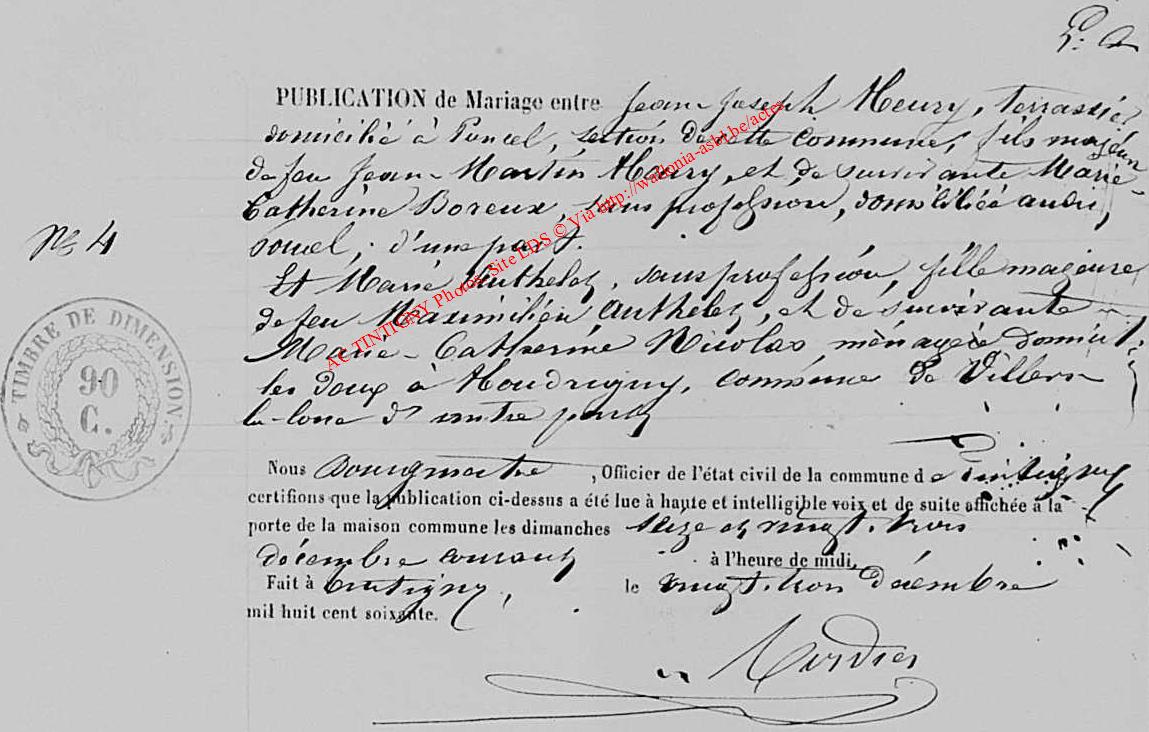 PUBLICATION de Mariage entre Jean Joseph Henry, terrassier
domicilié à Poncel, section de cette commune, fils majeur
de feu Jean-Martin Henry, et de survivante Marie-
Catherine Boreux, sans profession, domiciliée audit
Poncel, d'une part.
N° 4
Et Marie Authelet, sans profession, fille majeure
de feu Maximilien Authelet, et de survivante
Marie-Catherine Nicolas, ménagère domicil.
les deux à Houdrigny, commune de Villers
la-loue d'autre part
TIMBRE DE DIMENSION
90
C.
Nous Bourgmestre, Officier de l'état civil de la commune de Tintigny
certifions que la publication ci-dessus a été lue à haute et intelligible voix et de suite affichée à la
porte de la maison commune les dimanches seize et vingt-trois
décembre courant à l'heure de midi,
Fait à Tintigny, le vingt-trois décembre
mil huit cent soixante.
AC TINTIGNY Photos Site EDS © Via http://wallonia-asbl.be/actes